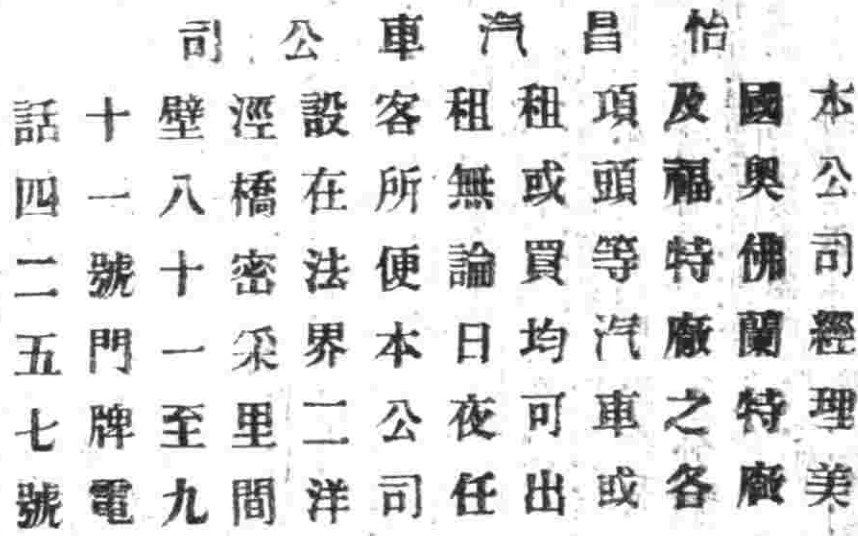 怡昌汽車公司
本公司經理美
國奧佛蘭特廠
及福特廠之各
項頭等汽車或
租或買均可出
租無論日夜任
客所便本公司
設在法界二洋
涇橋密采里間
壁八十一至九
十一號門牌電
話四二五七號